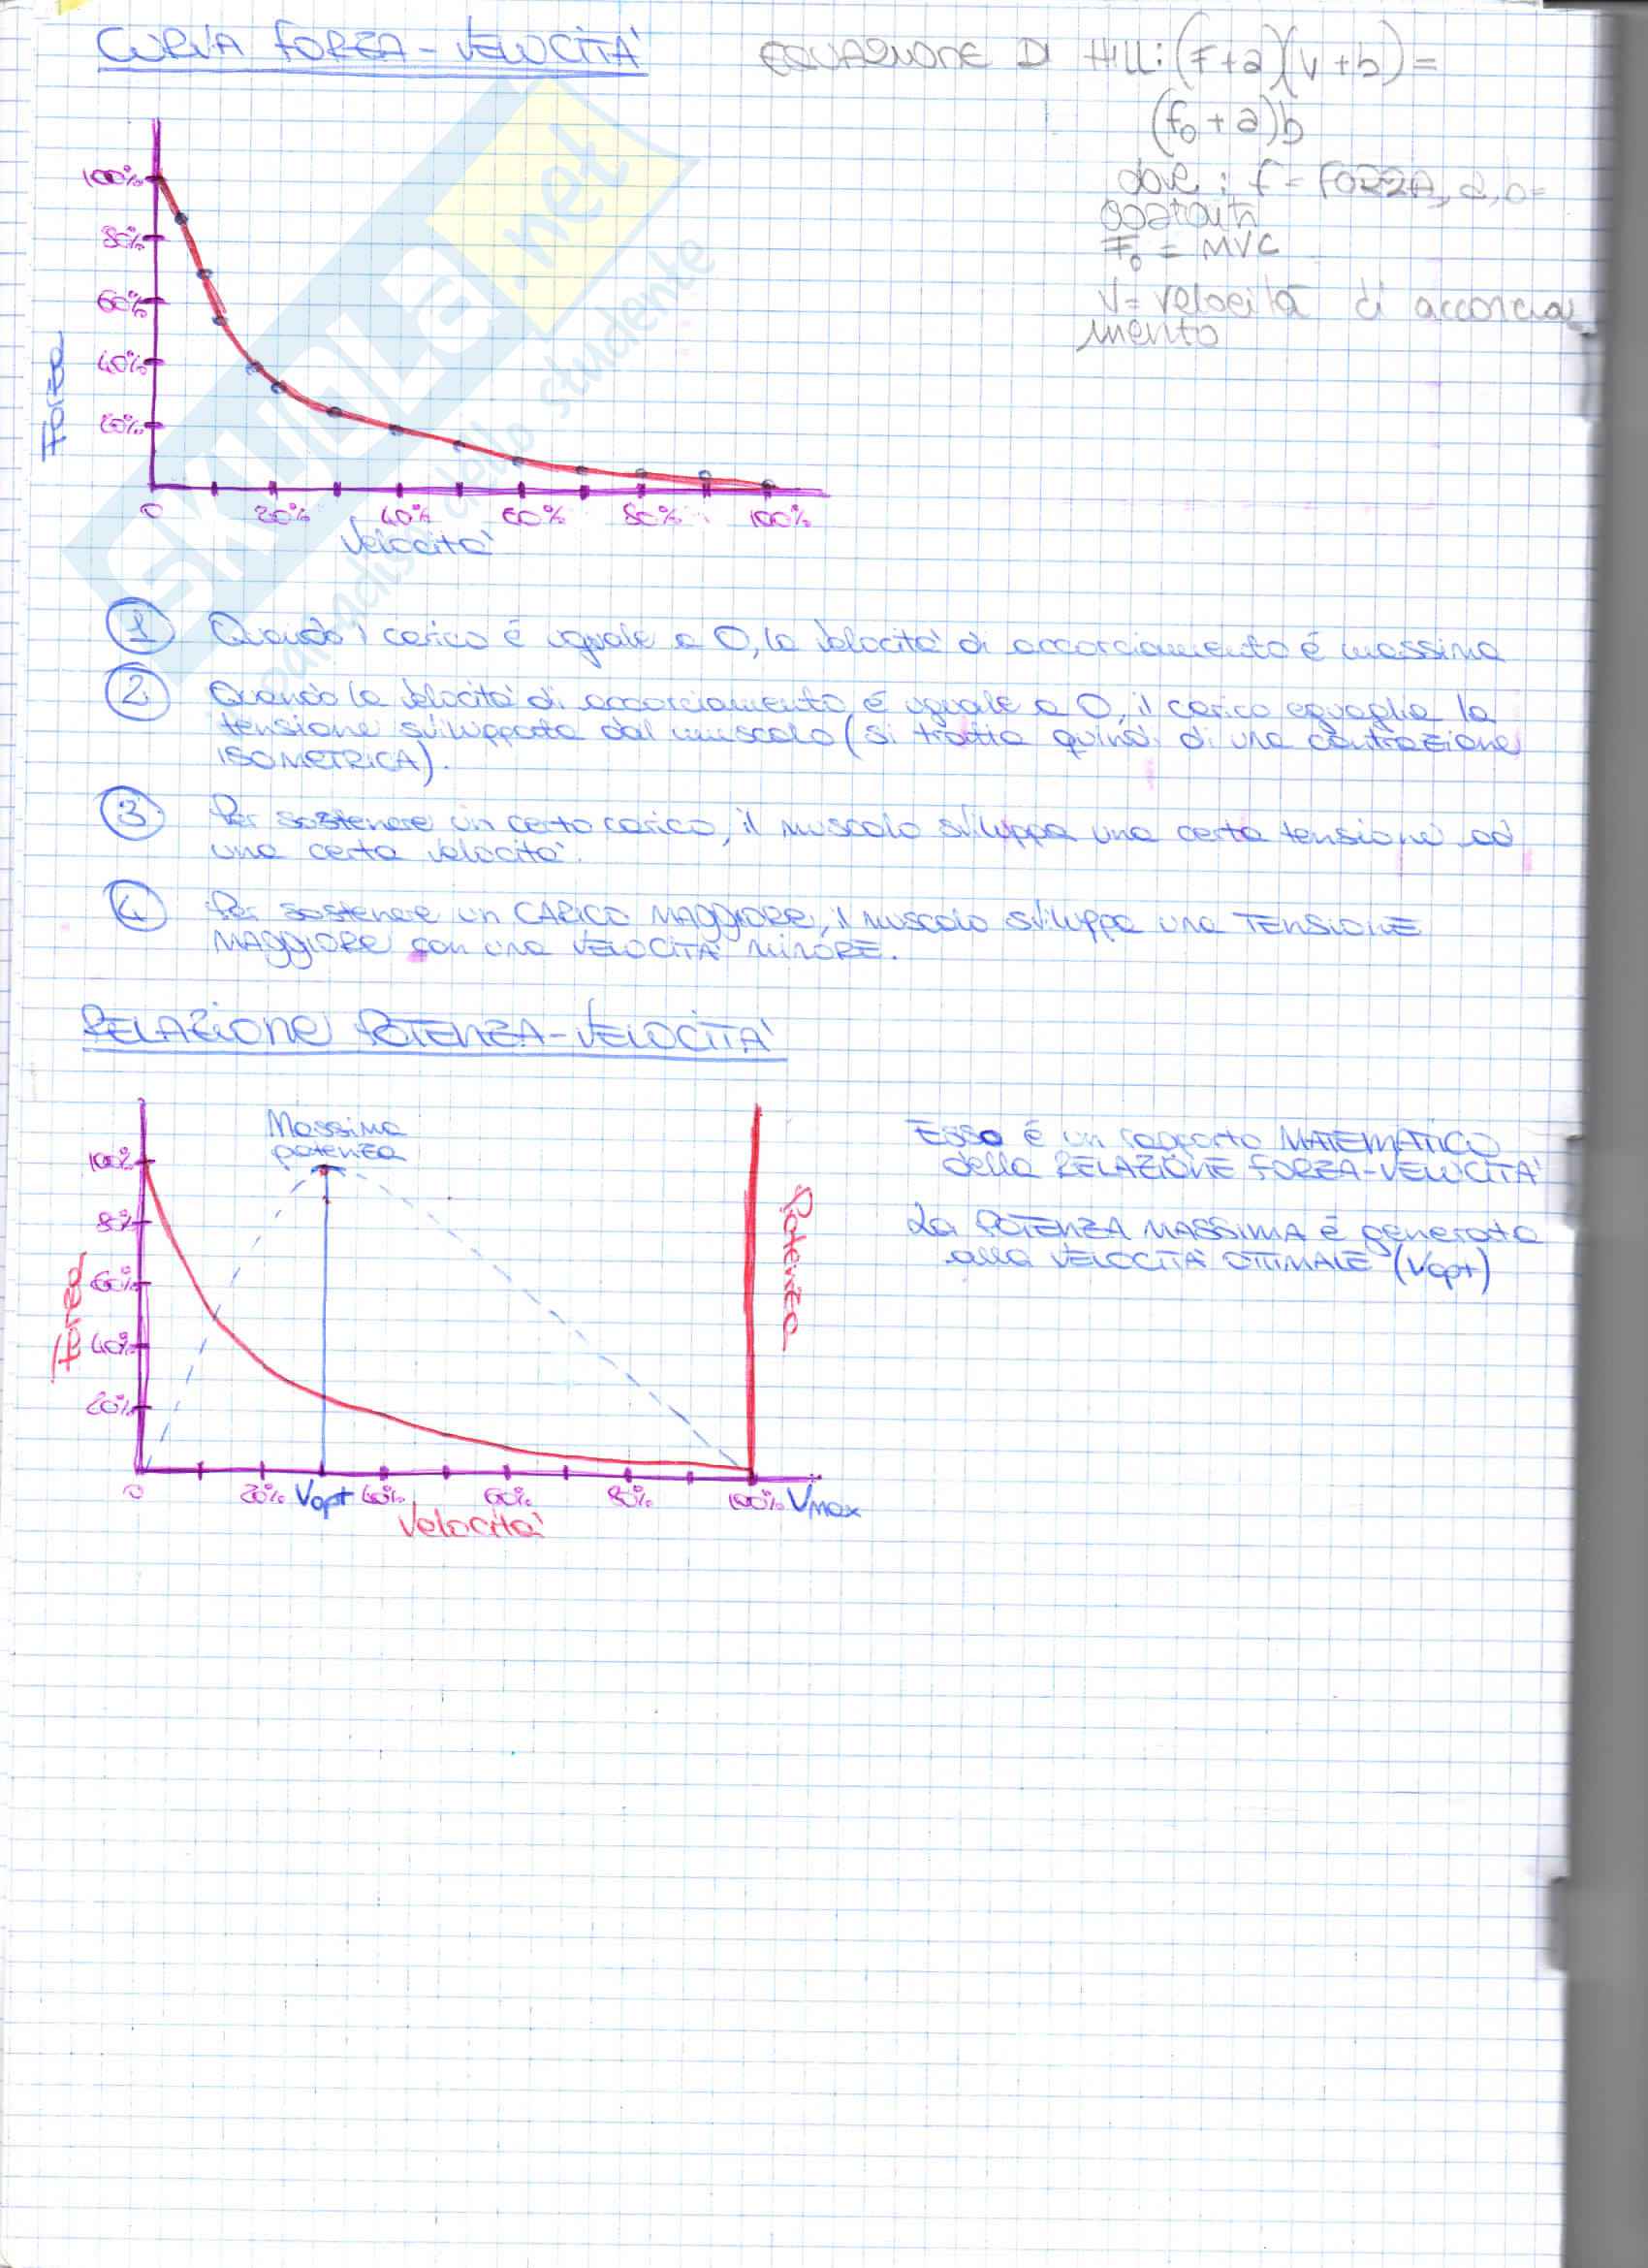 CURVA FORZA-VELOCITA'
EQUAZIONE DI HILL: (F+a)(v+b)=
(f₀+a)b
dove: f= FORZA, a,b=
costanti
F₀ = MVC
V= velocità di accorcia
mento
100%
80%
60%
40%
20%
Forza
0 20% 40% 60% 80% 100%
Velocita'
SKUOLA.net
paradiso dello studente
1 Quando i carico é uguale a 0, la velocita' di accorciamento é massima
2 Quando la velocita' di accorciamento é uguale a 0, il carico eguaglia la
tensione sviluppata dal muscolo (si tratta quindi di una contrazione
ISOMETRICA).
3 Per sostenere un certo carico, il muscolo sviluppa una certa tensione ad
una certa velocita'.
4 Per sostenere un CARICO MAGGIORE, il muscolo sviluppa una TENSIONE
MAGGIORE con una VELOCITA' MINORE.
RELAZIONE POTENZA-VELOCITA'
Massima
potenza
100%
80%
60%
40%
20%
Forza
Potenza
0 20% Vopt 40% 60% 80% 100% Vmax
Velocita'
Esso é un rapporto MATEMATICO
della RELAZIONE FORZA-VELOCITA'
La POTENZA MASSIMA é generata
alla VELOCITA' OTTIMALE (Vopt)